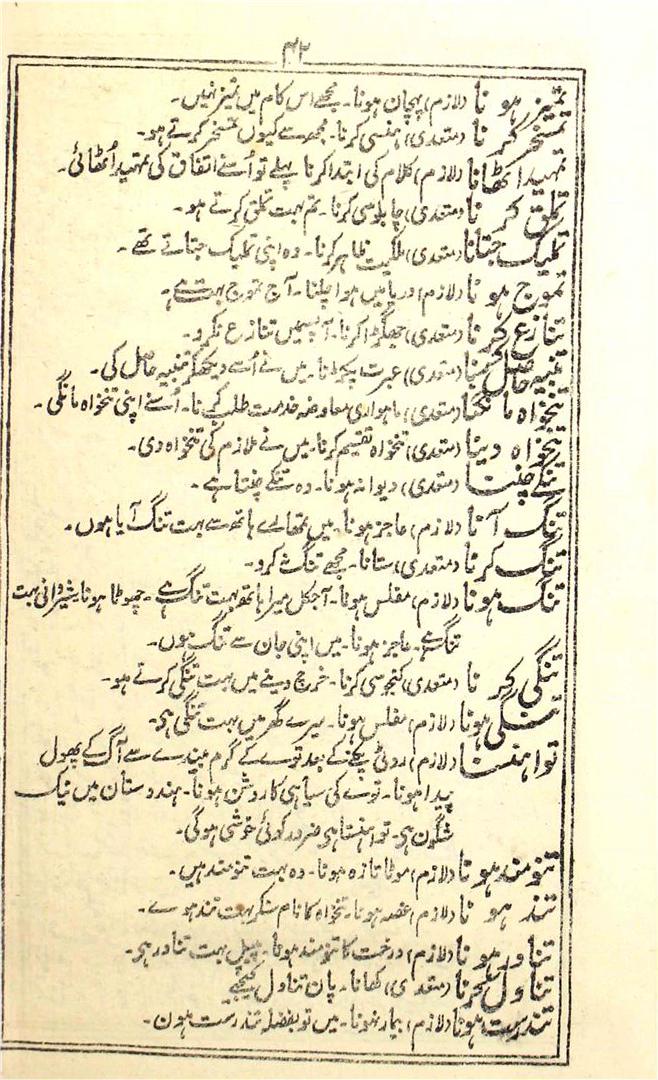 ۴۲
تمیز ہونا (لازم) پہچان ہونا۔ مجھے اس کام میں تمیز نہیں۔
تمسخر کرنا (متعدی) ہنسی کرنا۔ مجھ سے کیوں تمسخر کرتے ہو۔
تمہید اٹھانا (لازم) کلام کی ابتدا کرنا پہلے تو اُسنے اتفاق کی تمہید اُٹھائی۔
تملق کرنا (متعدی) چاپلوسی کرنا۔ تم بہت تملق کرتے ہو۔
تملیک جتانا (متعدی) ملکیت ظاہر کرنا۔ وہ اپنی تملیک جتاتے تھے۔
تموج ہونا (لازم) دریا میں ہوا چلنا۔ آج تموج بہت ہے۔
تنازع کرنا (متعدی) جھگڑا کرنا۔ آپسمیں تنازع نکرو۔
تنبیہ حاصل کرنا (متعدی) عبرت پکڑنا۔ میں نے اُسے دیکھکر تنبیہ حاصل کی۔
تنخواہ مانگنا (متعدی) ماہواری معاوضہ خدمت طلب کرنا۔ اُسنے اپنی تنخواہ مانگی۔
تنخواہ دینا (متعدی) تنخواہ تقسیم کرنا۔ میں نے ملازم کی تنخواہ دی۔
تنکے چننا (متعدی) دیوانہ ہونا۔ وہ تنکے چنتا ہے۔
تنگ آنا (لازم) عاجز ہونا۔ میں تمھارے ہاتھ سے بہت تنگ آیا ہوں۔
تنگ کرنا (متعدی) ستانا۔ مجھے تنگ نہ کرو۔
تنگ ہونا (لازم) مفلس ہونا۔ آجکل میرا ہاتھ بہت تنگ ہے۔ چھوٹا ہونا شیروانی بہت
تنگ ہے۔ عاجز ہونا۔ میں اپنی جان سے تنگ ہوں۔
تنگی کرنا (متعدی) کنجوسی کرنا۔ خرچ دینے میں بہت تنگی کرتے ہو۔
تنگی ہونا (لازم) مفلس ہونا۔ میرے گھر میں بہت تنگی ہی۔
توا ہنسنا (لازم) روٹی پکنے کے بعد توے کے گرم پیندے سے آگ کے پھول
پیدا ہونا۔ توے کی سیاہی کا روشن ہونا۔ ہندوستان میں نیک
شگون ہی۔ توا ہنستا ہی ضرور کوئی خوشی ہوگی۔
تنومند ہونا (لازم) موٹا تازہ ہونا۔ وہ بہت تنومند ہیں۔
تند ہونا (لازم) غصہ ہونا۔ تنخواہ کا نام سنکر بہت تند ہوے۔
تناور ہونا (لازم) درخت کا تنومند ہونا۔ پیپل بہت تناور ہی۔
تناول کرنا (متعدی) کھانا۔ پان تناول کیجیے
تندرست ہونا (لازم) بیمار نہونا۔ میں تو بفضلہ تندرست ہون۔